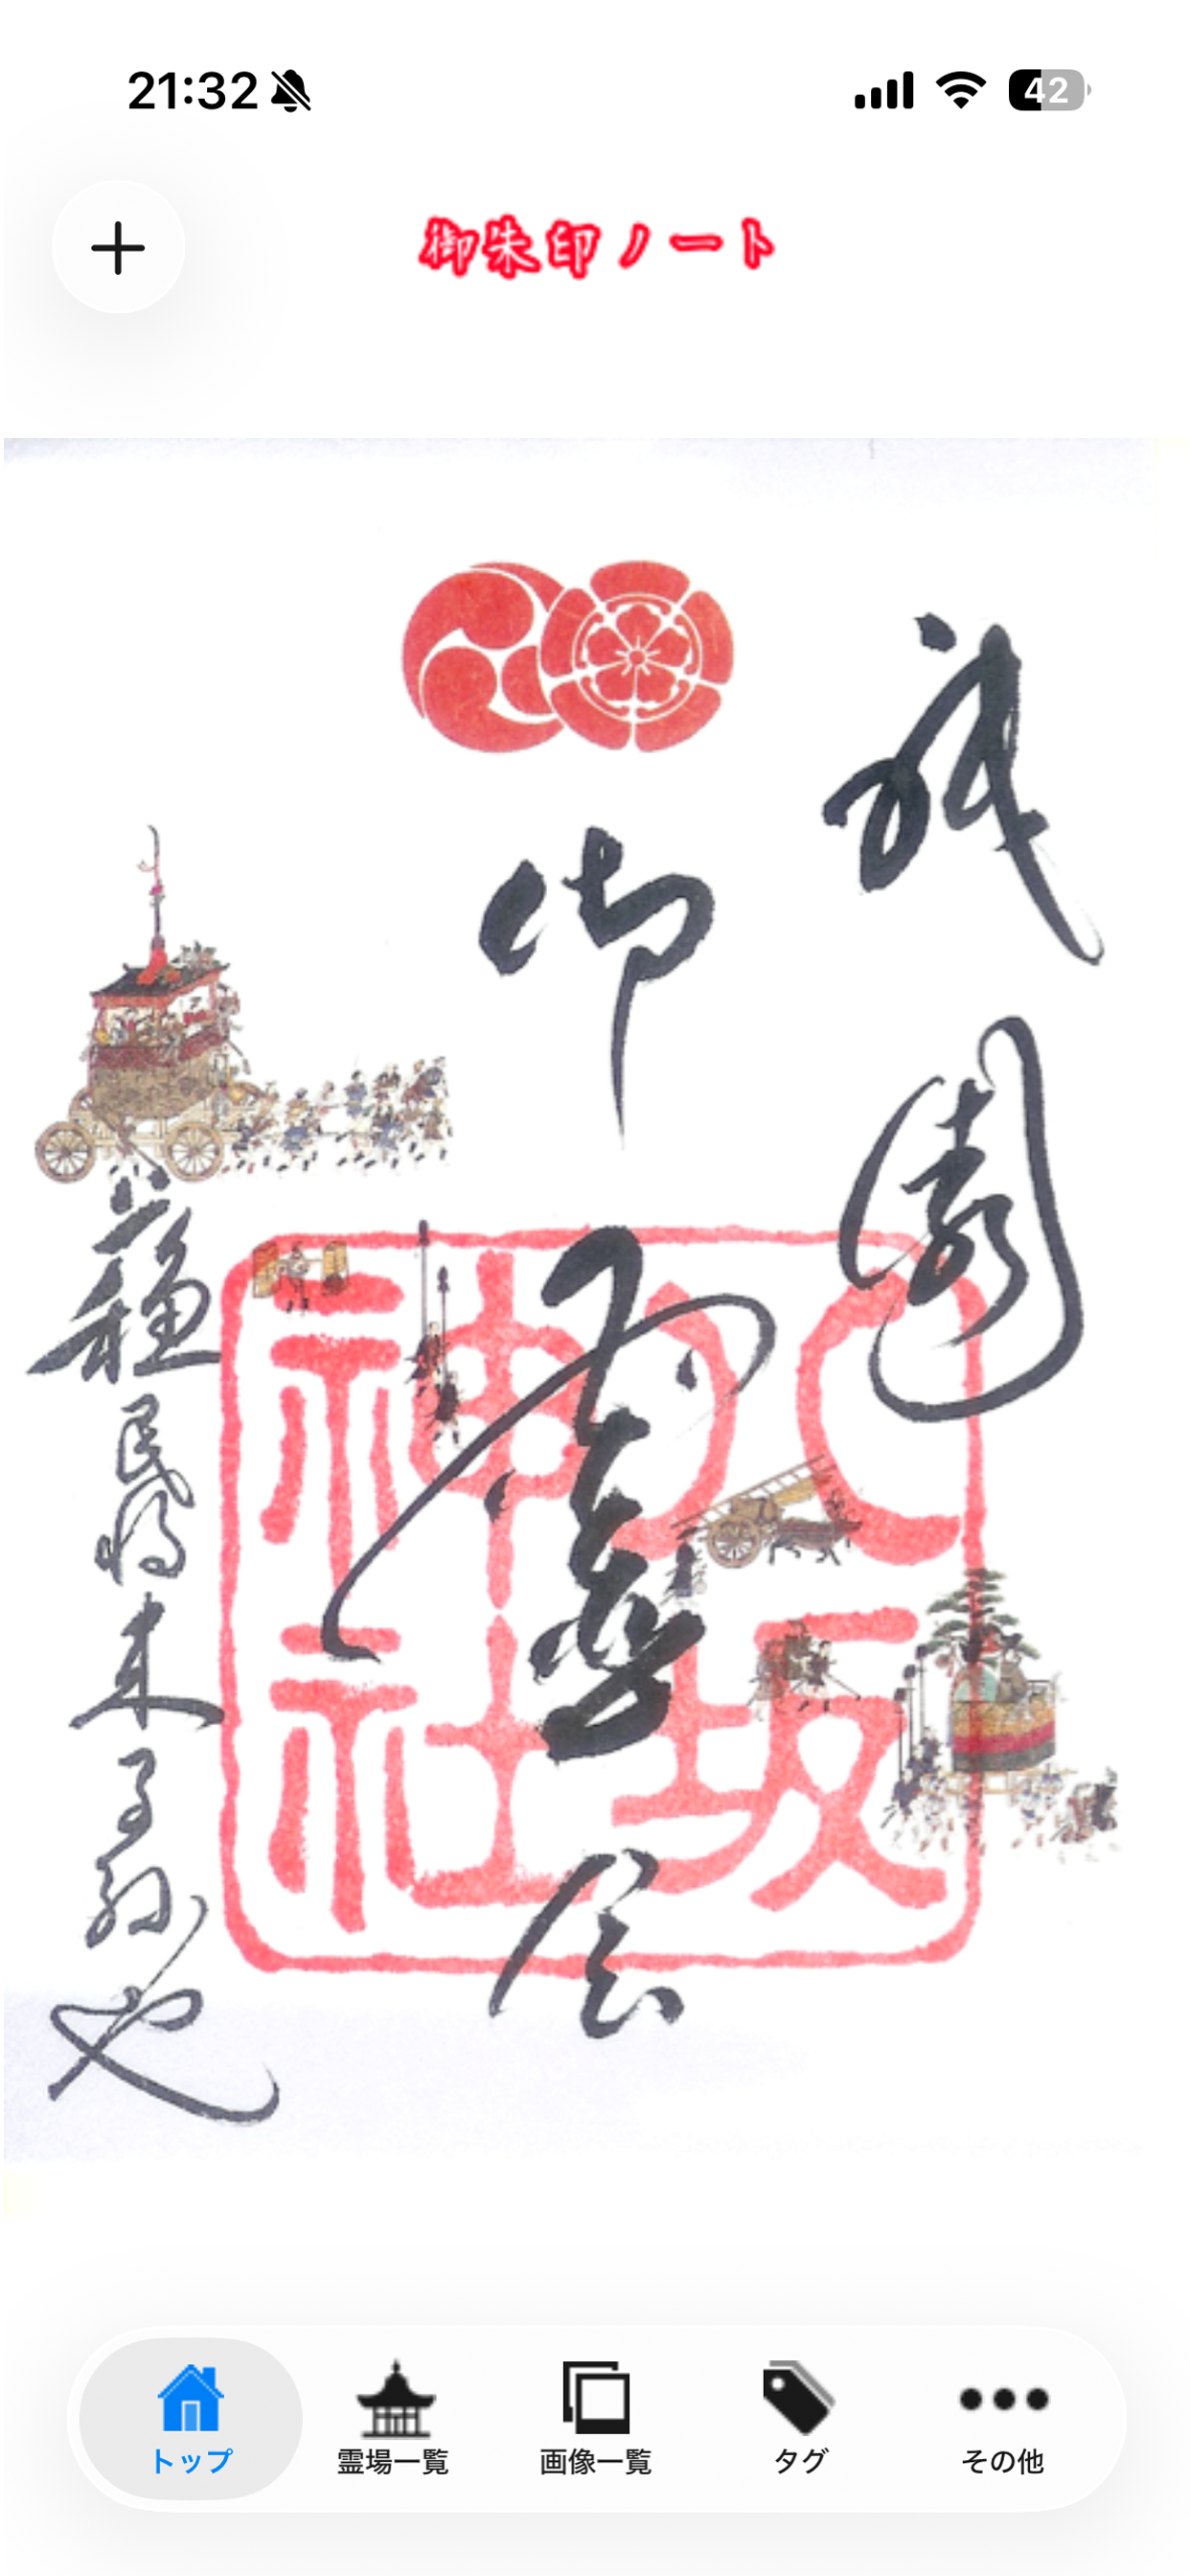 21:32
42
御朱印ノート
祇園
御霊会
蘇民将来子孫也
八坂神社
トップ
霊場一覧
画像一覧
タグ
その他